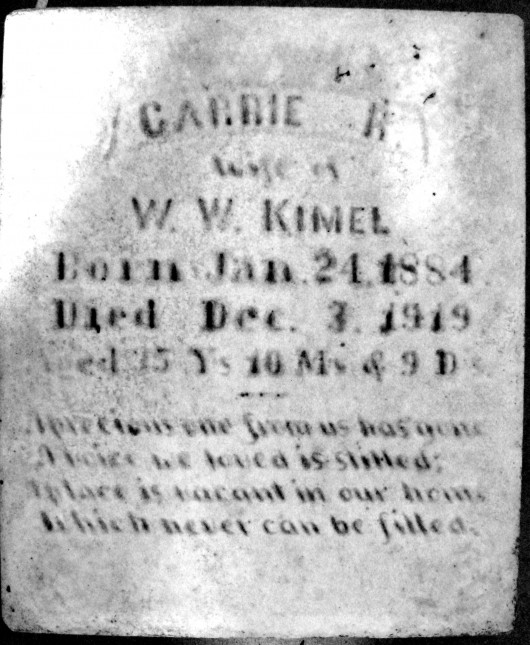 CARRIE R.
wife of
W. W. KIMEL
Born Jan. 24, 1884
Died Dec. 3, 1919
Aged 35 Ys 10 Ms & 9 Ds
A precious one from us has gone
A voice we loved is stilled;
A place is vacant in our home
Which never can be filled.